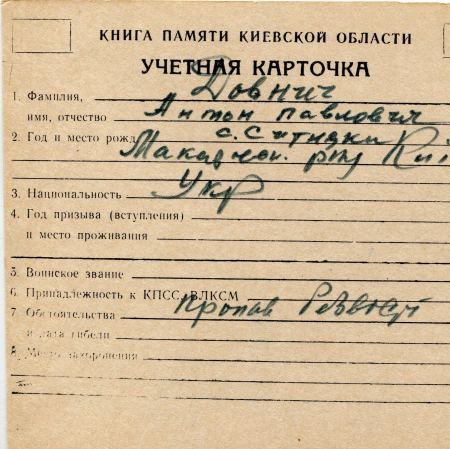 КНИГА ПАМЯТИ КИЕВСКОЙ ОБЛАСТИ
УЧЕТНАЯ КАРТОЧКА
1. Фамилия, Довнич
имя, отчество Антон Павлович
2. Год и место рожд с. Ситняки
Макар рну Ки
3. Национальность Укр
4. Год призыва (вступления)
и место проживания
5. Воинское звание
6. Принадлежность к КПСС, ВЛКСМ
7. Обстоятельства Пропав безвісті
и дата гибели
8. Место захоронения